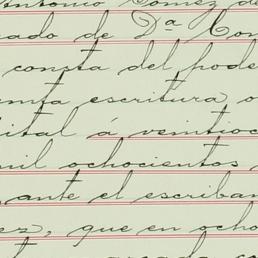 Antonio Gomez de
de Dª
consta del pode
escritura o
á veintioc
mil ochocientos
ante el escriban
ez, que en ocho